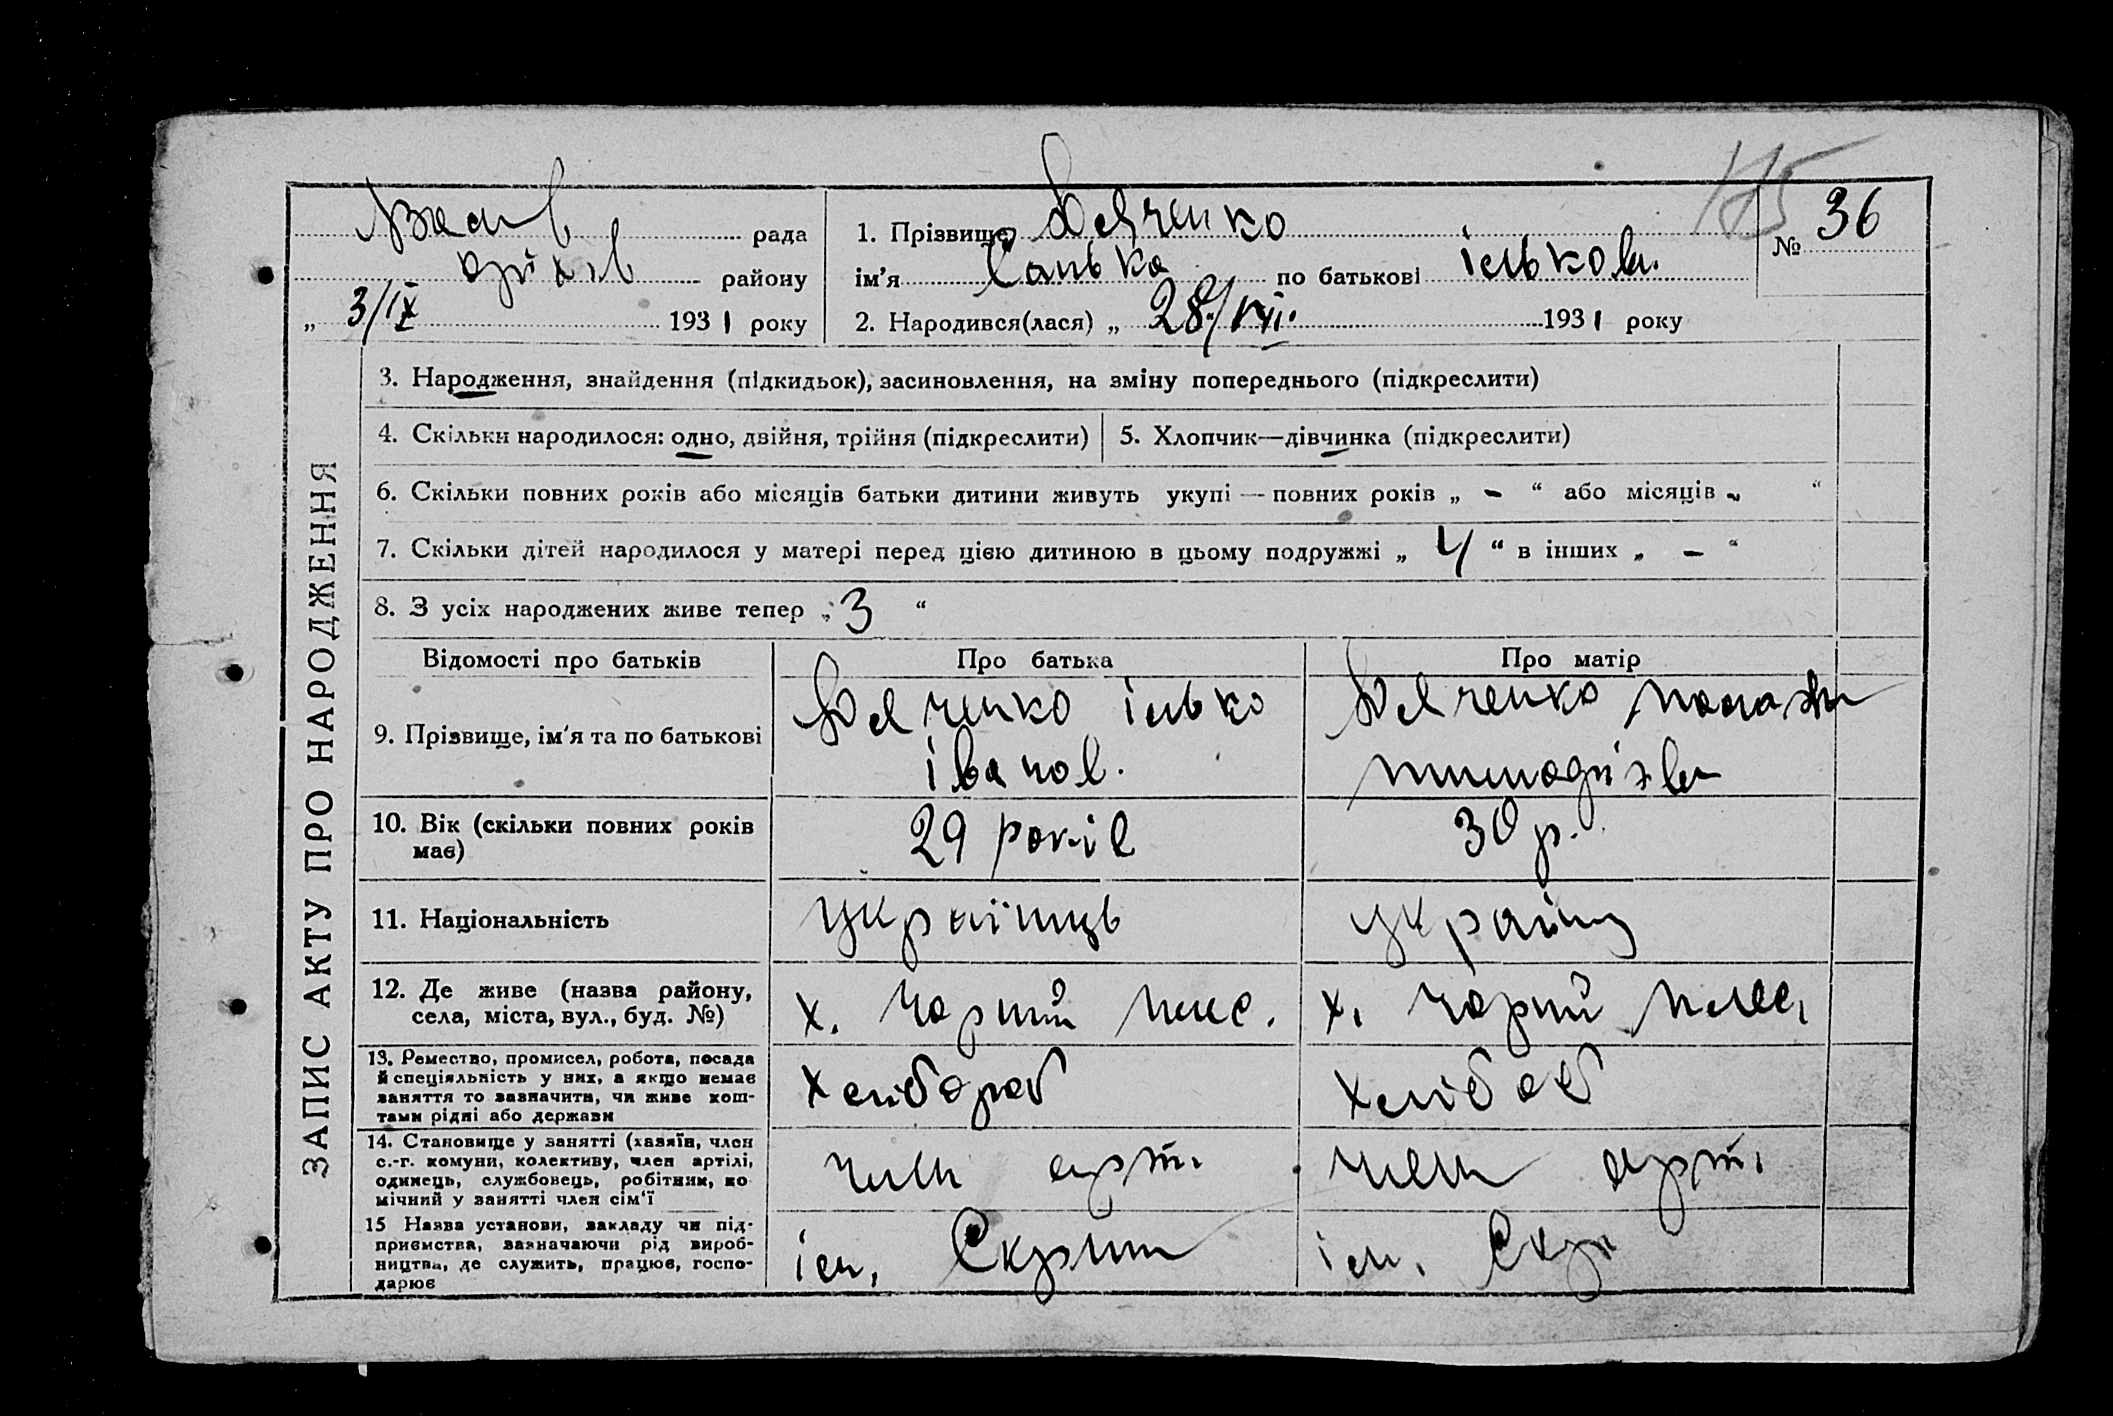 175
рада
1. Прізвище Дяченко
№ 36
району
ім'я Санька по батькові ількова.
„ 3/IX 1931 року
2. Народився(лася) „ 28/VIII. 1931 року
ЗАПИС АКТУ ПРО НАРОДЖЕННЯ
3. Народження, знайдення (підкидьок), засиновлення, на зміну попереднього (підкреслити)
4. Скільки народилося: одно, двійня, трійня (підкреслити)
5. Хлопчик—дівчинка (підкреслити)
6. Скільки повних років або місяців батьки дитини живуть укупі — повних років „ - “ або місяців „ “
7. Скільки дітей народилося у матері перед цією дитиною в цьому подружжі „ 4 “ в інших „ - “
8. З усіх народжених живе тепер „ 3 “
Відомості про батьків
Про батька
Про матір
9. Прізвище, ім'я та по батькові
Дяченко ілько
іванов.
Дяченко
10. Вік (скільки повних років
має)
29 років
30 р.
11. Національність
українць
12. Де живе (назва району,
села, міста, вул., буд. №)
х. Чорний
х. Чорний
13. Ремество, промисел, робота, посада
й спеціяльність у них, а якщо немає
заняття то зазначити, чи живе кош-
тами рідні або держави
хлібороб
14. Становище у занятті (хазяїн, член
с.-г. комуни, колективу, член артілі,
одинець, службовець, робітник, по
мічний у занятті член сім'ї
член арт.
член арт.
15 Назва установи, закладу чи під-
приємства, зазначаючи рід вироб-
ництва, де служить, працює, госпо-
дарює
ім.
ім.